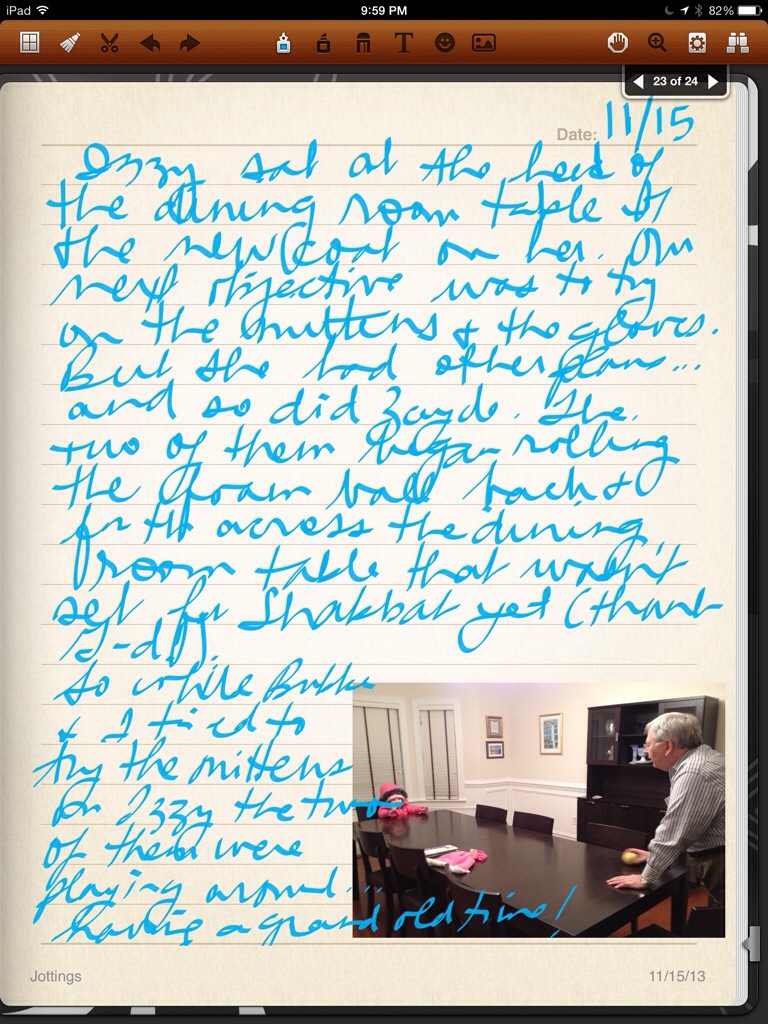 iPad 9:59 PM 82%
T
23 of 24
Date: 11/15
Izzy sat at the head of
the dining room table
the new coat on her. Our
next objective was to try
on the mittens & the gloves.
But she had other plans...
and so did Zayde. The
two of them began rolling
the foam ball back &
forth across the dining
room table that wasn't
set for Shabbat yet (thank
G-d!).
So while Bubbe
& I tried to
try the mittens
on Izzy the two
of them were
playing around...
having a grand old time!
Jottings 11/15/13